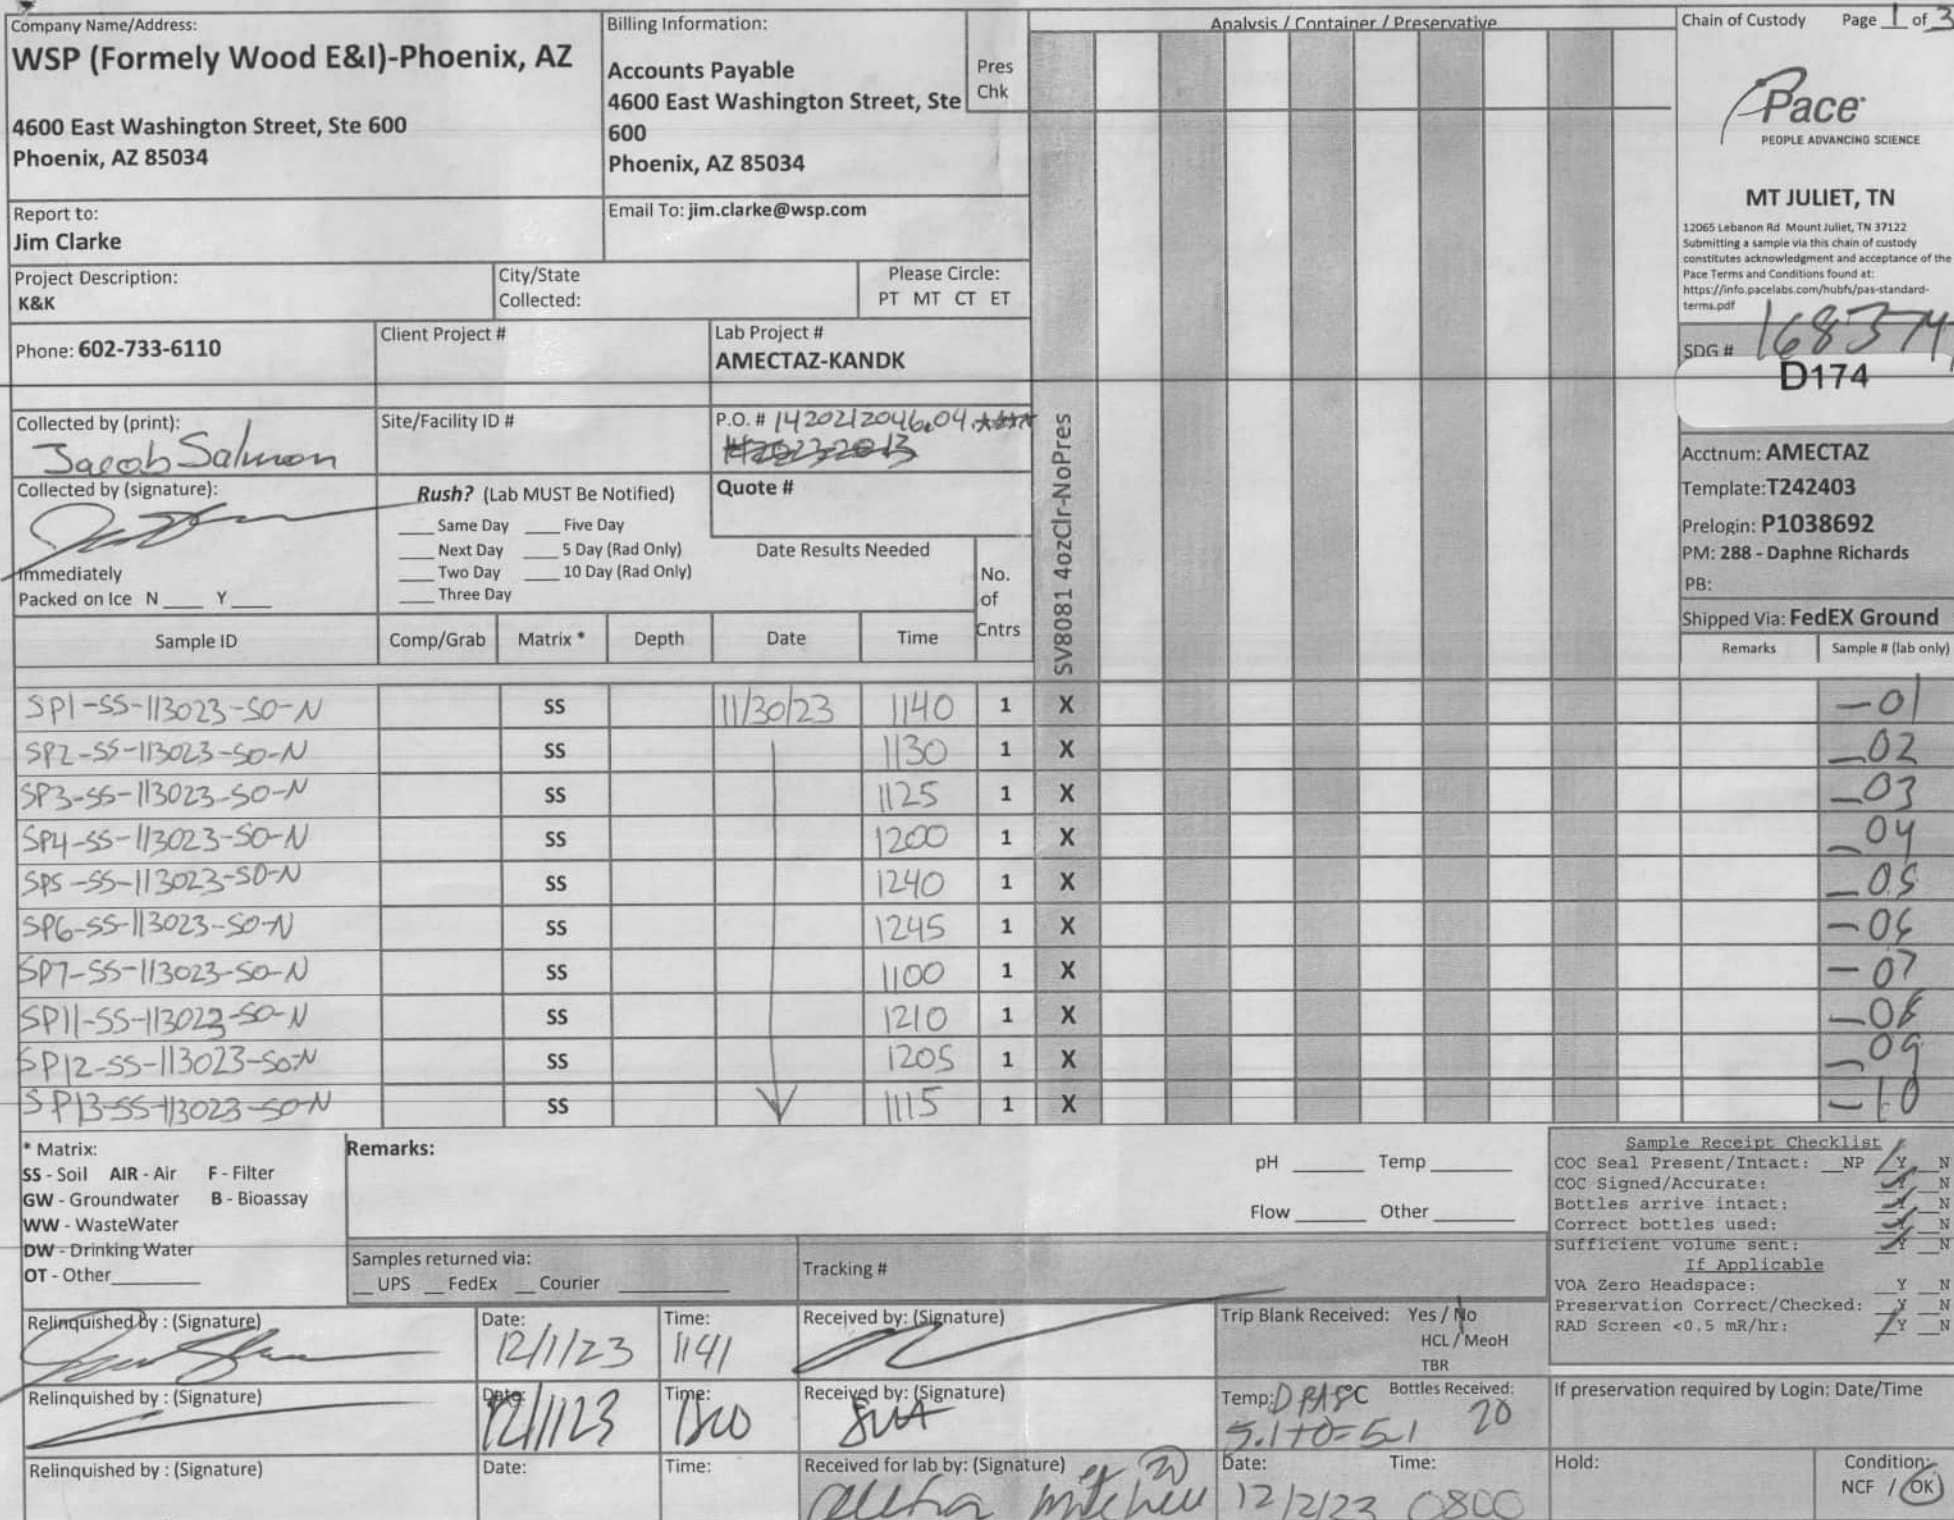 Company Name/Address:
WSP (Formely Wood E&I)-Phoenix, AZ
4600 East Washington Street, Ste 600
Phoenix, AZ 85034
Billing Information:
Accounts Payable
4600 East Washington Street, Ste
600
Phoenix, AZ 85034
Pres
Chk
Analysis / Container / Preservative
Chain of Custody Page 1 of 3
Pace
PEOPLE ADVANCING SCIENCE
MT JULIET, TN
12065 Lebanon Rd Mount Juliet, TN 37122
Submitting a sample via this chain of custody
constitutes acknowledgment and acceptance of the
Pace Terms and Conditions found at:
https://info.pacelabs.com/hubfs/pas-standard-
terms.pdf
Report to:
Jim Clarke
Email To: jim.clarke@wsp.com
Project Description:
K&K
City/State
Collected:
Please Circle:
PT MT CT ET
Phone: 602-733-6110
Client Project #
Lab Project #
AMECTAZ-KANDK
SDG # 168374
D174
Collected by (print):
Jacob Salmon
Site/Facility ID #
P.O. # 1420212046.04
Collected by (signature):
Rush? (Lab MUST Be Notified)
Same Day Five Day
Next Day 5 Day (Rad Only)
Two Day 10 Day (Rad Only)
Three Day
Quote #
Date Results Needed
No.
of
Cntrs
Immediately
Packed on Ice N ___ Y ___
SV8081 4ozClr-NoPres
Acctnum: AMECTAZ
Template:T242403
Prelogin: P1038692
PM: 288 - Daphne Richards
PB:
Shipped Via: FedEX Ground
Sample ID Comp/Grab Matrix * Depth Date Time Remarks Sample # (lab only)
SP1-SS-113023-SO-N SS 11/30/23 1140 1 X -01
SP2-SS-113023-SO-N SS 1130 1 X -02
SP3-SS-113023-SO-N SS 1125 1 X -03
SP4-SS-113023-SO-N SS 1200 1 X -04
SP5-SS-113023-SO-N SS 1240 1 X -05
SP6-SS-113023-SO-N SS 1245 1 X -06
SP7-SS-113023-SO-N SS 1100 1 X -07
SP11-SS-113023-SO-N SS 1210 1 X -08
SP12-SS-113023-SO-N SS 1205 1 X -09
SP13-SS-113023-SO-N SS 1115 1 X -10
* Matrix:
SS - Soil AIR - Air F - Filter
GW - Groundwater B - Bioassay
WW - WasteWater
DW - Drinking Water
OT - Other
Remarks:
pH ___ Temp ___
Flow ___ Other ___
Samples returned via:
UPS FedEx Courier
Tracking #
Sample Receipt Checklist
COC Seal Present/Intact: NP Y N
COC Signed/Accurate: Y N
Bottles arrive intact: Y N
Correct bottles used: Y N
Sufficient volume sent: Y N
If Applicable
VOA Zero Headspace: Y N
Preservation Correct/Checked: Y N
RAD Screen <0.5 mR/hr: Y N
Relinquished by : (Signature)
Date:
12/1/23
Time:
1141
Received by: (Signature)
Trip Blank Received: Yes / No
HCL / MeoH
TBR
Relinquished by : (Signature)
Date:
12/1/23
Time:
Received by: (Signature)
Temp:
5.1+0=5.1
Bottles Received:
20
If preservation required by Login: Date/Time
Relinquished by : (Signature)
Date:
Time:
Received for lab by: (Signature)
Mitchell
Date: Time:
12/2/23 0800
Hold:
Condition:
NCF / OK